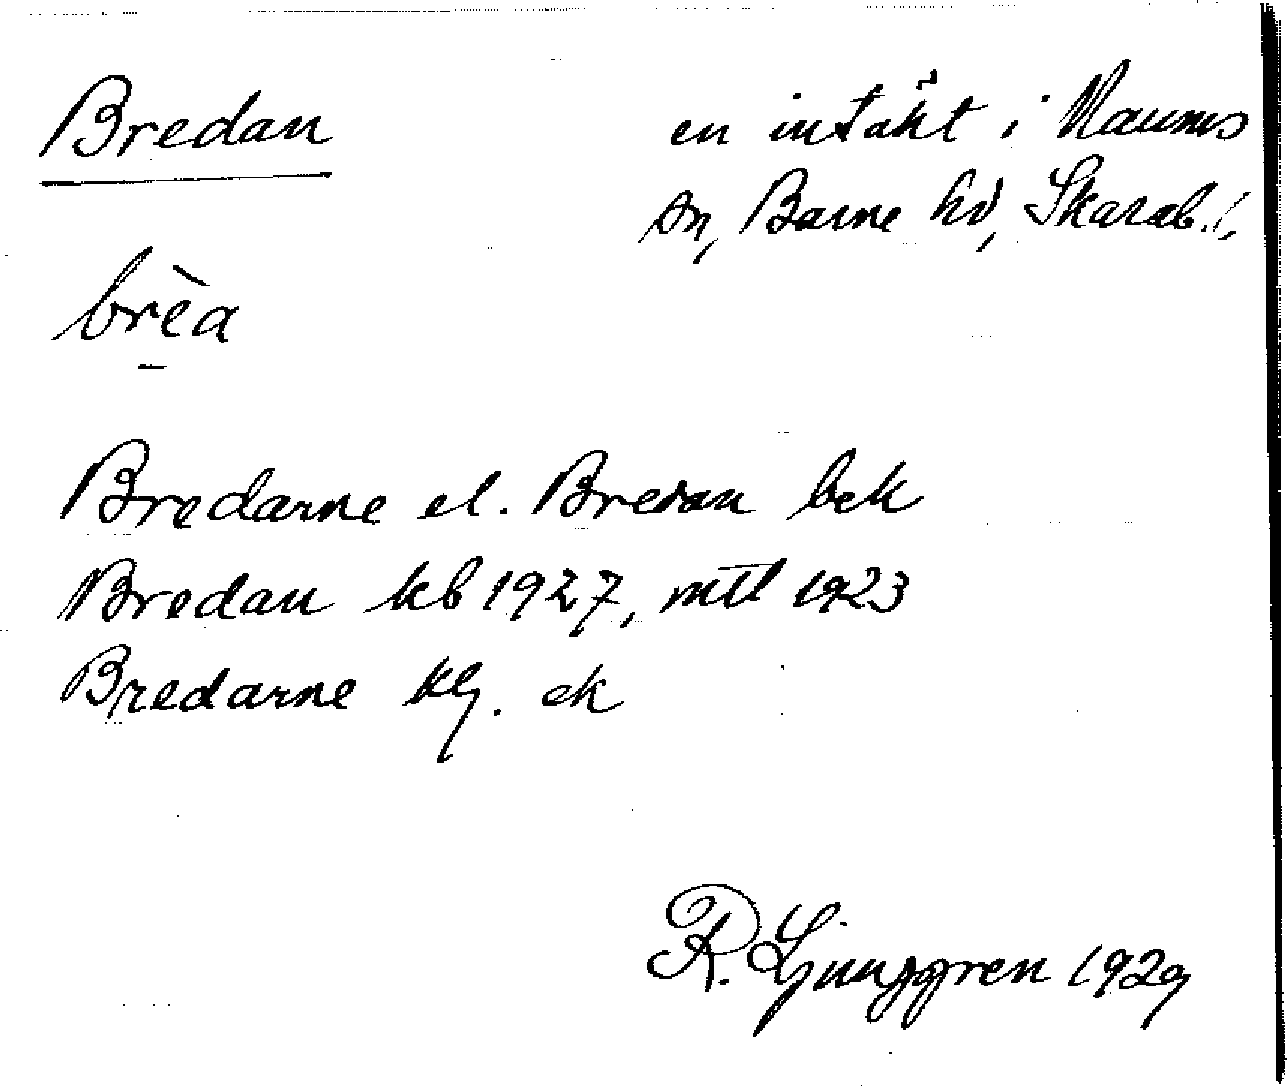 Bredan
en intäkt i Naums
sn, Barne hd, Skarab. l.
brèa
Bredarne el. Bredan bek
Bredan kb 1927, mtl 1923
Bredarne kg. ek
R. Ljunggren 1929